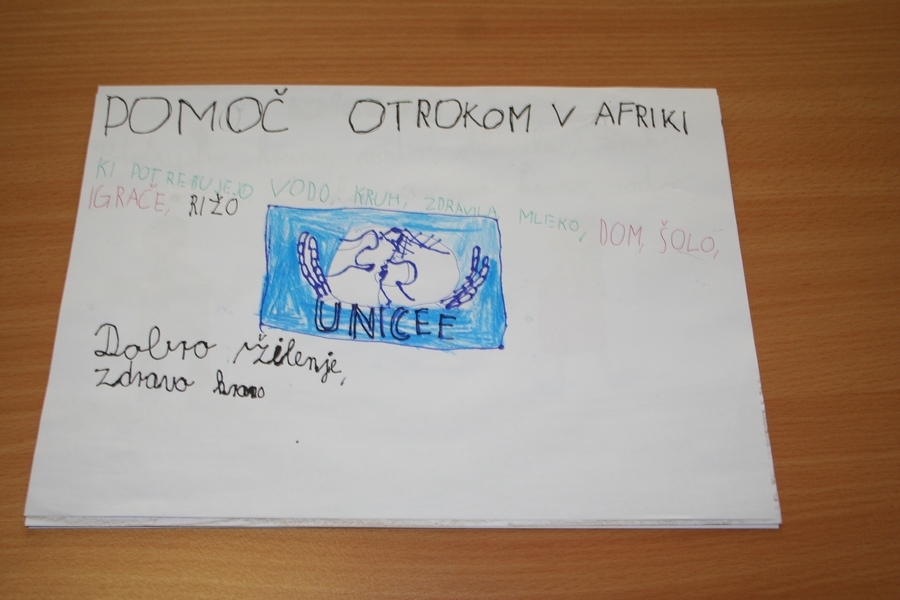 POMOČ OTROKOM V AFRIKI
KI POTREBUJEJO VODO, KRUH, ZDRAVILA MLEKO, DOM, ŠOLO,
IGRAČE, RIŽO
UNICEF
Dobro življenje,
zdravo hrano